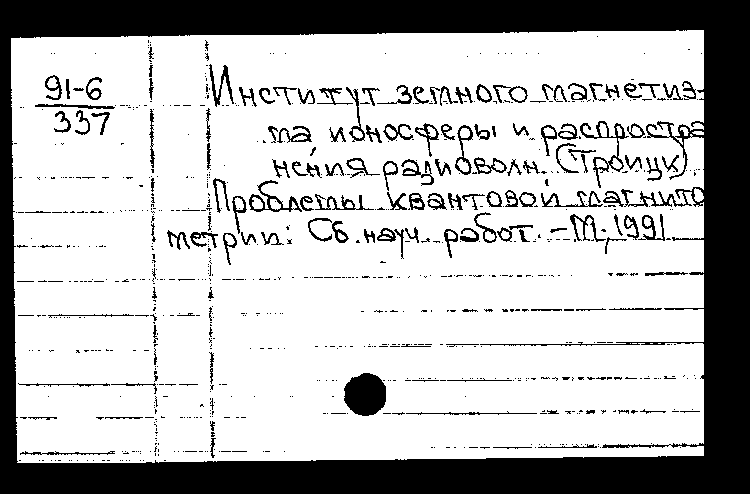 91-6
337
Институт земного магнетиз-
ма, ионосферы и распростра
нения радиоволн. (Троицк).
Проблемы квантовой магнито
метрии: Сб. науч. работ. - М., 1991.